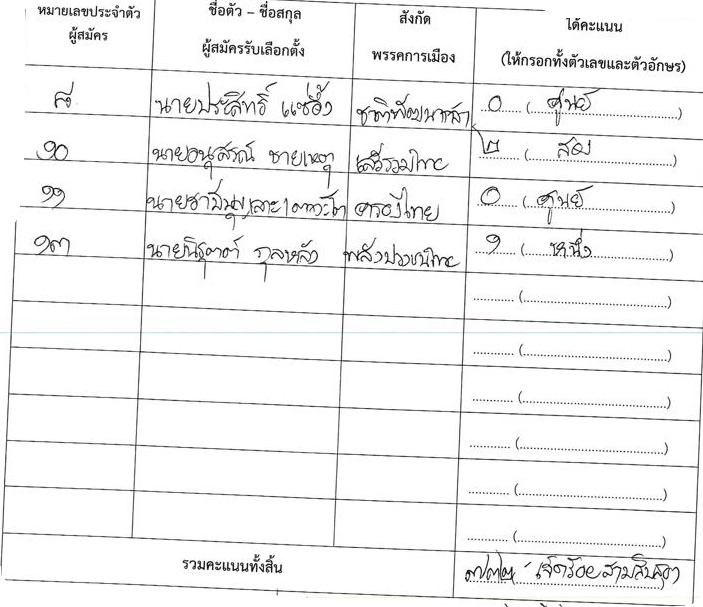 หมายเลขประจำตัว
ผู้สมัคร
ชื่อตัว – ชื่อสกุล
ผู้สมัครรับเลือกตั้ง
สังกัด
พรรคการเมือง
ได้คะแนน
(ให้กรอกทั้งตัวเลขและตัวอักษร)
๘ นายประสิทธิ์ แซ่อึ้ง ชาติพัฒนากล้า ๐ (ศูนย์)
๑๐ นายอนุสรณ์ ชายเหตุ เสรีรวมไทย ๒ (สอง)
๑๑ ไทย ๐ (ศูนย์)
๑๓ พลังปวงชนไทย ๑ (หนึ่ง)
........... (........................................)
........... (........................................)
........... (........................................)
........... (........................................)
........... (........................................)
........... (........................................)
รวมคะแนนทั้งสิ้น ๗๓๒ - เจ็ดร้อยสามสิบสอง